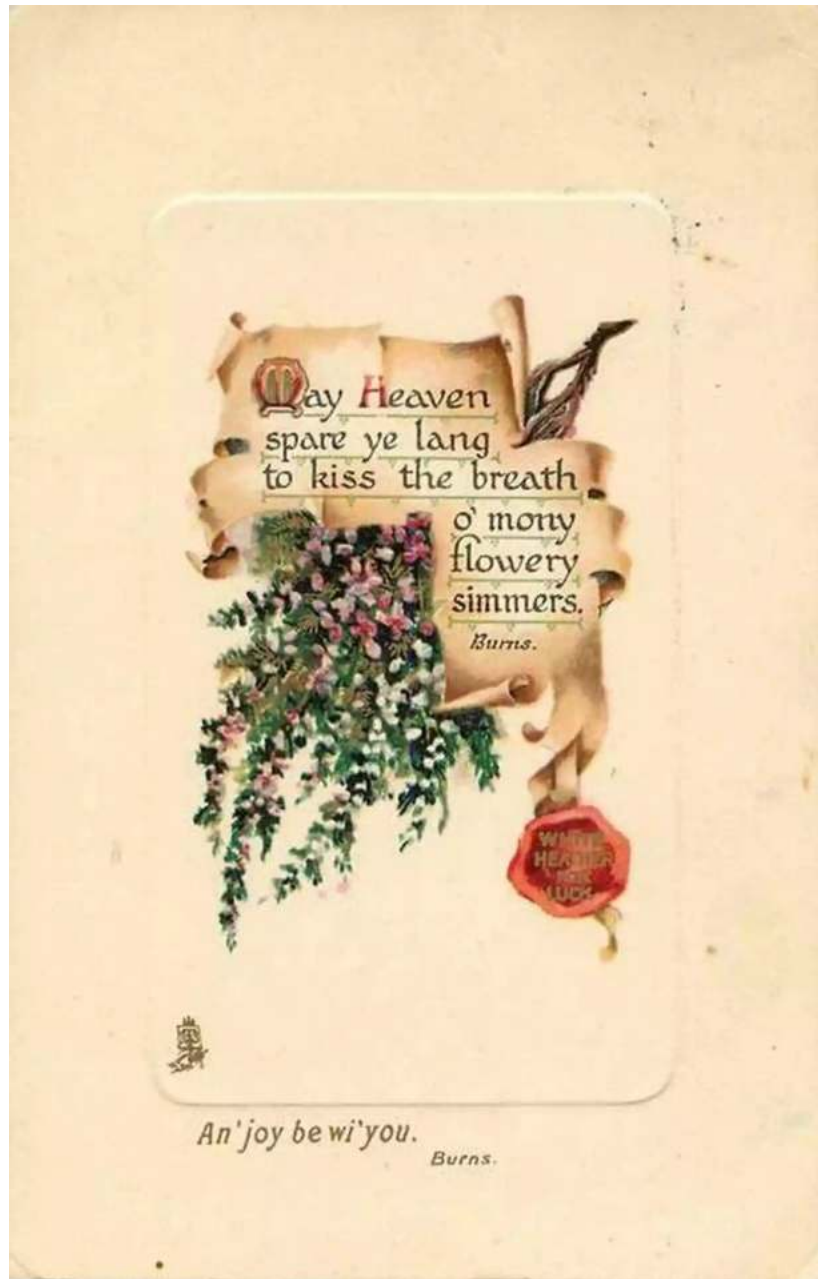 May Heaven
spare ye lang
to kiss the breath
o' mony
flowery
simmers.
Burns.
WHITE
HEATHER
FOR
LUCK
An' joy be wi' you.
Burns.